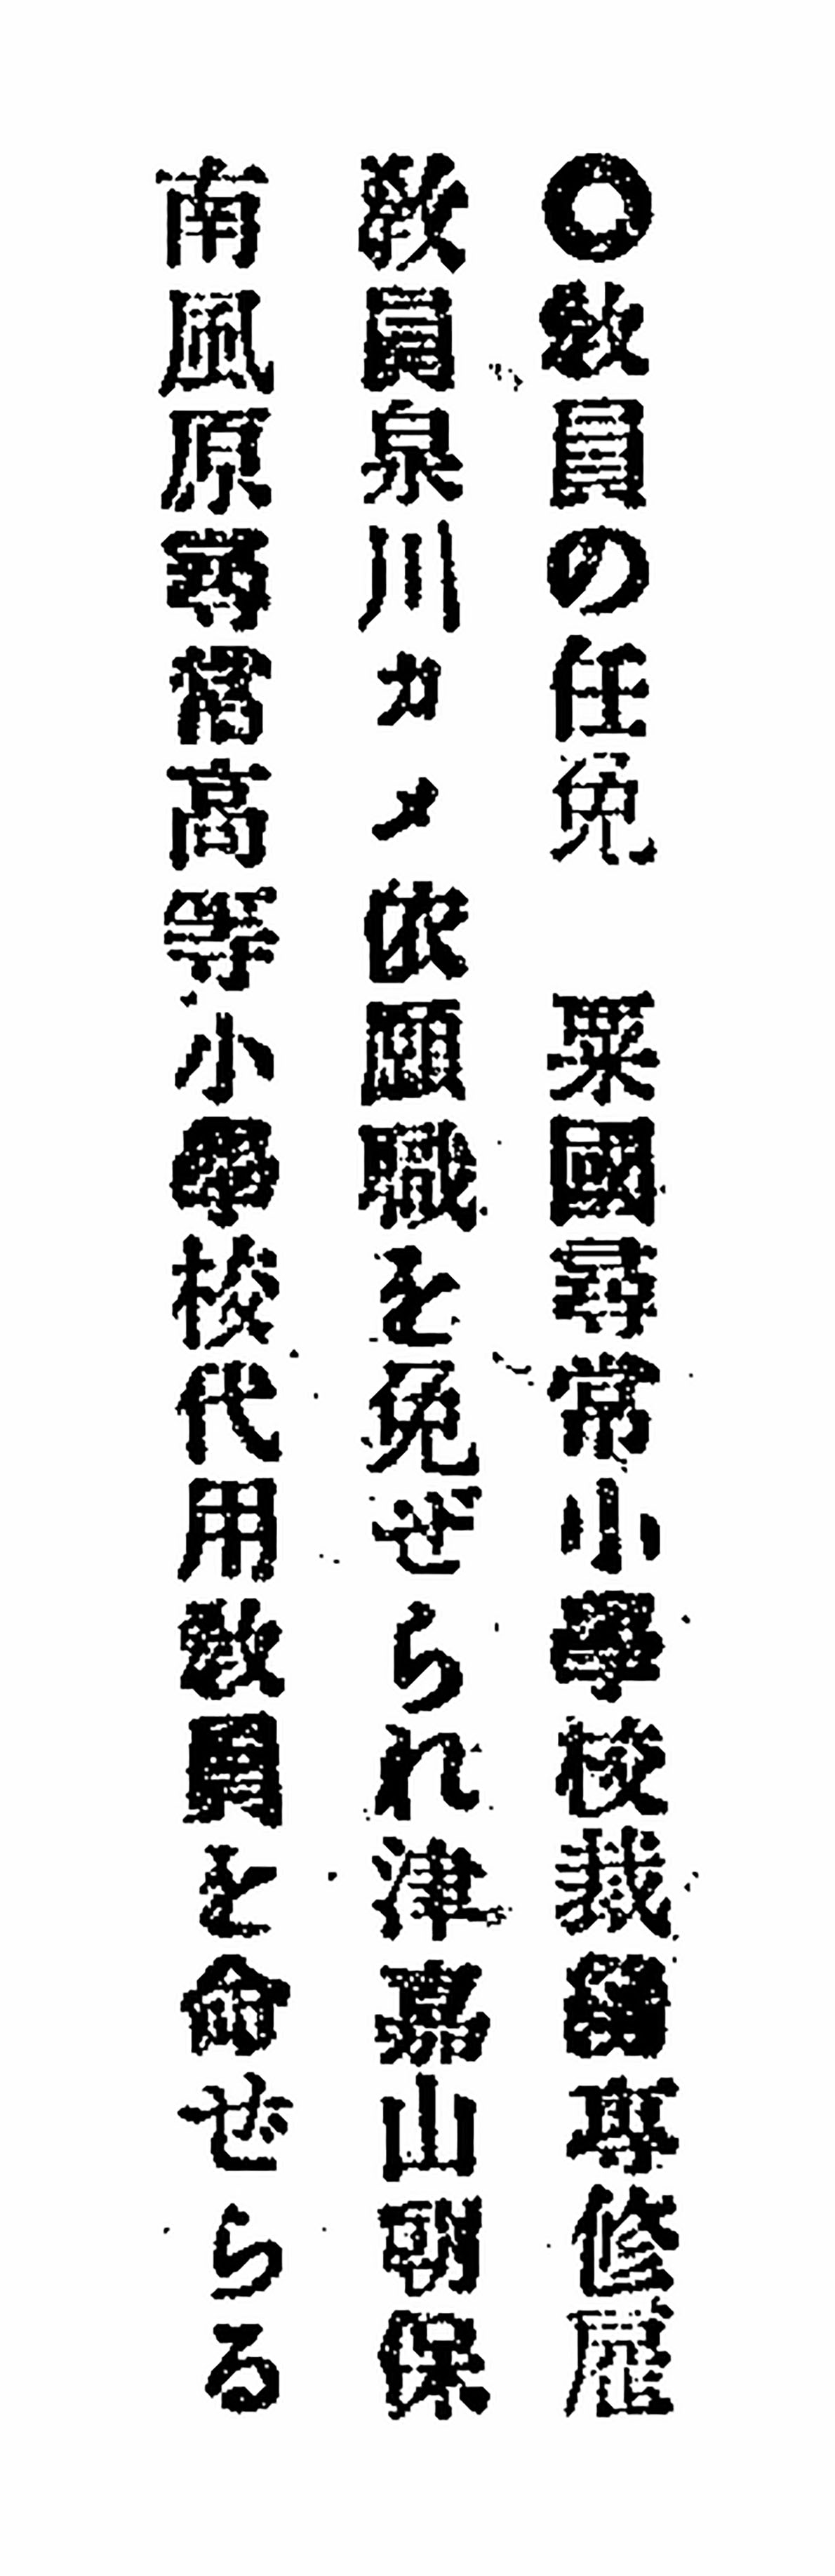 ○教員の任免　粟國尋常小學校裁縫專修雇
教員泉川カメ依願職を免ぜられ津嘉山朝保
南風原尋常高等小學校代用教員を命ぜらる